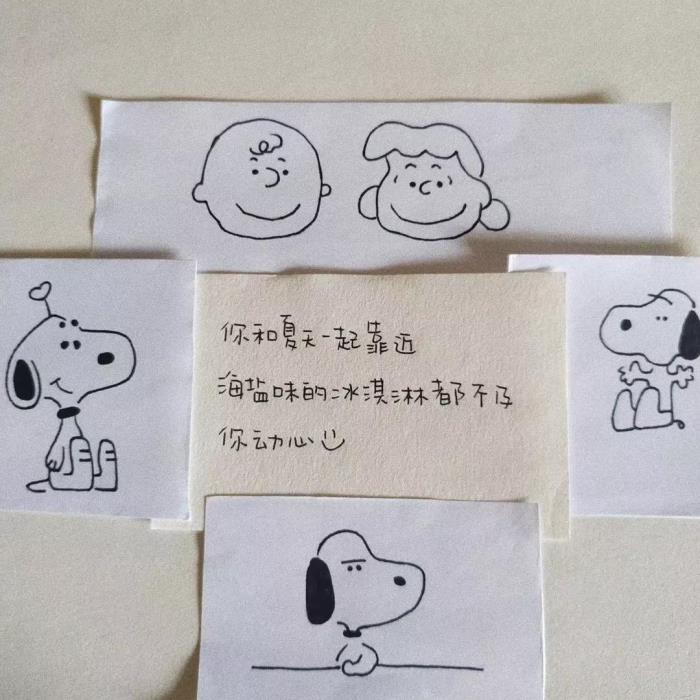 你和夏天一起靠近
海盐味的冰淇淋都不及
你动心